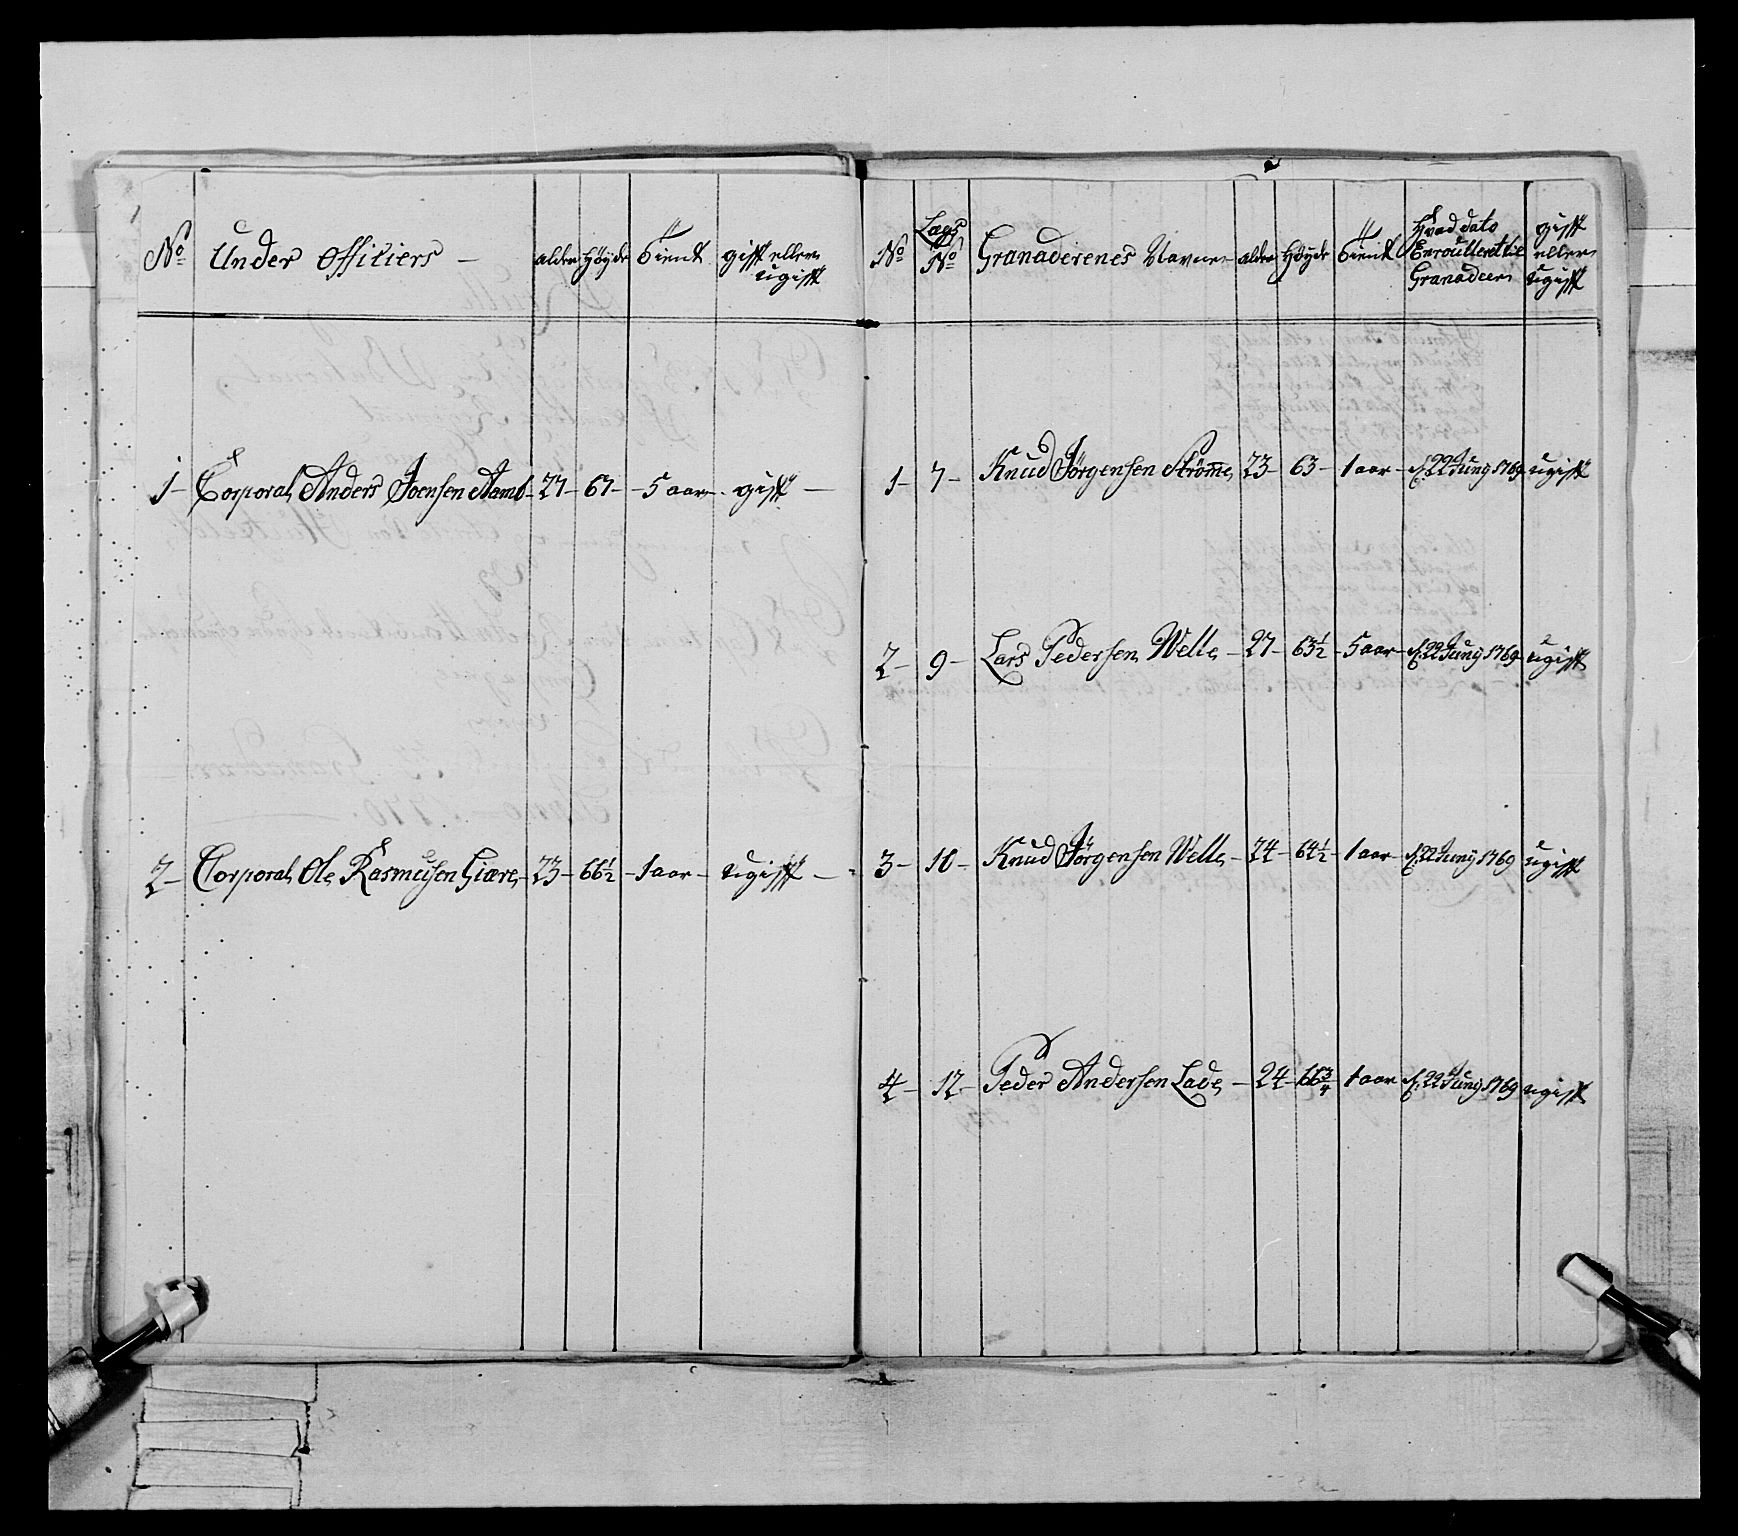 No Under Officiers alder Høyde tient gift eller ugift
1 Corporal Anders Joensen Aamb 27 67 5 aar gift
2 Corporal Ole Rasmusen Giære 23 66½ 1 aar ugift
No Lægs No Granaderenes Navne alder Høyde tient Hvad dato Enroullerit til Granadeer gift eller ugift
1 7 Knud Jørgensen Strøme 23 63 1 aar d. 22 Juny 1769 ugift
2 9 Lars Pedersen Welle 27 63½ 5 aar d. 22 Juny 1769 ugift
3 10 Knud Jørgensen Welle 24 64½ 1 aar d. 22 Juny 1769 ugift
4 12 Peder Andersen Lade 24 66¾ 1 aar d. 22 Juny 1769 ugift